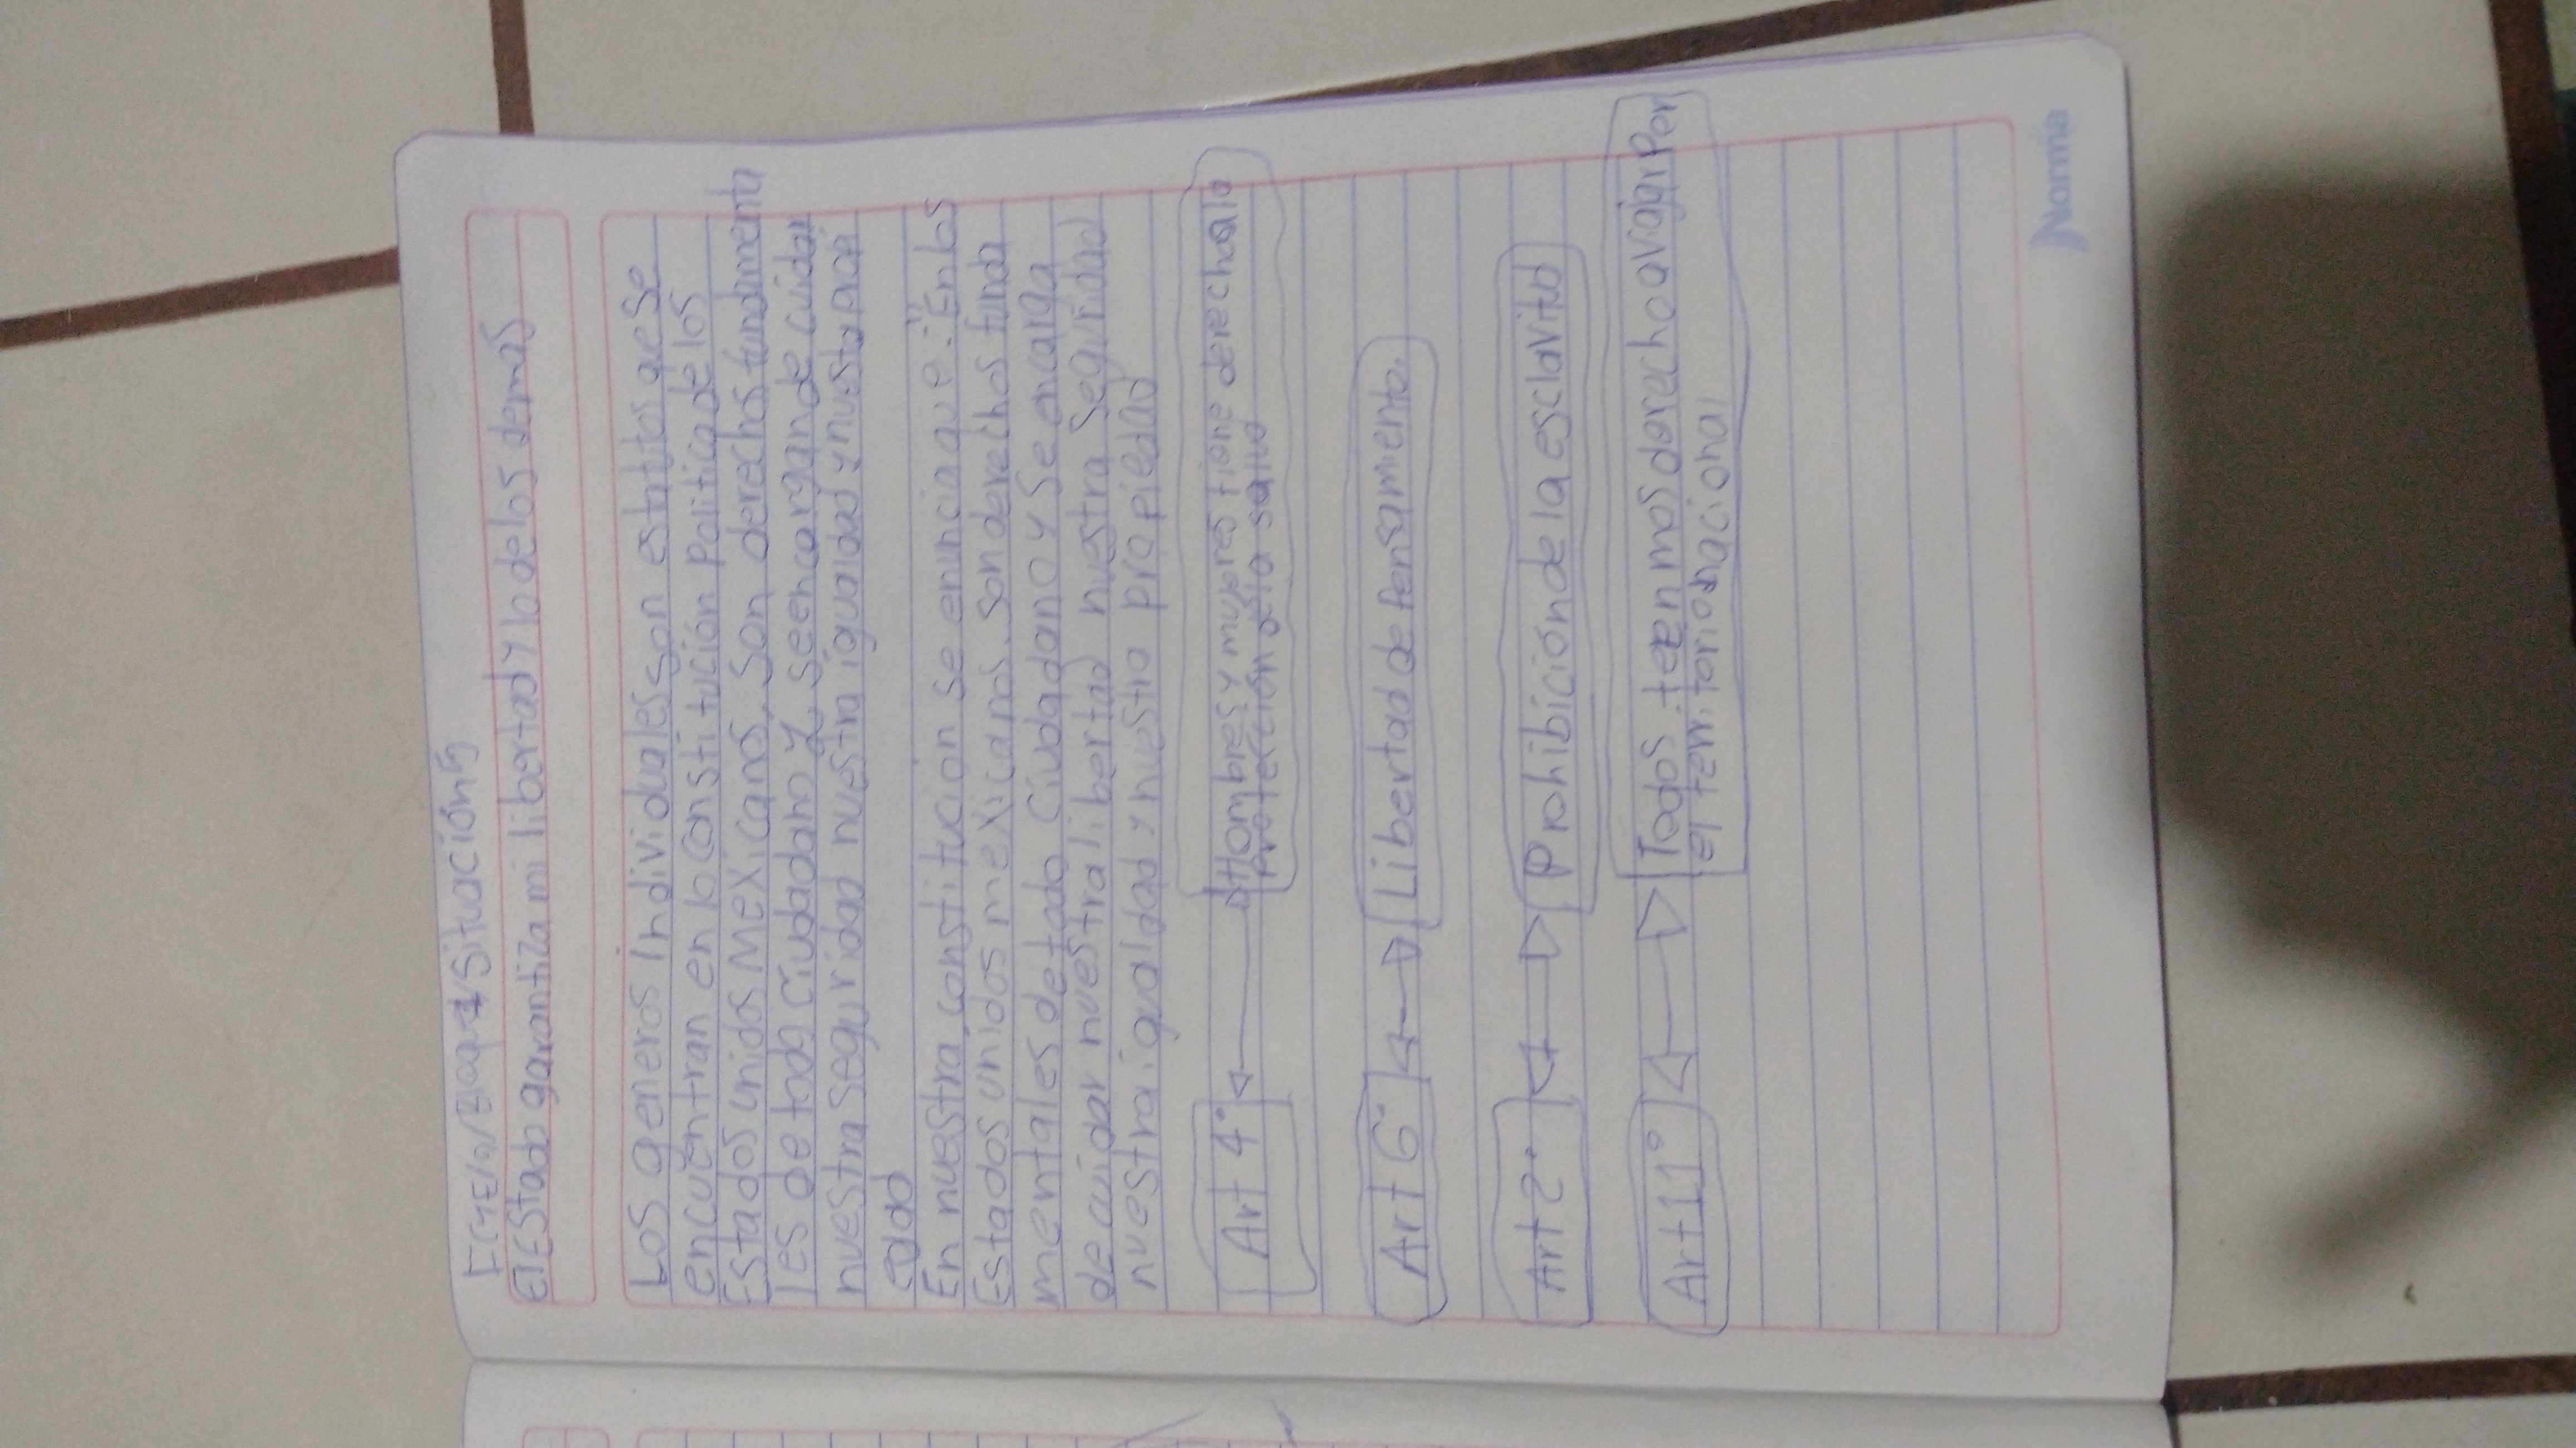 FCYE/9/Bloque 1 Situación 5
El Estado garantiza mi libertad y la de los demas
Los generos Individuales son estatitos que se
encuentran en la Constitución Politica de los
Estados unidos Mexicanos, son derechos fundamenta
les de todo Ciudadano y se encargan de cuidar
nuestra seguridad nuestra igualdad y nuesta propi
edad
En nuestra constitucion se enuncia que: "En los
Estados unidos mexicanos. son derechos funda
mentales de tado Ciudadano y Se encarga
de cuidar nuestra libertad nuestra Seguridad
nuestra igualdad y nuestra propiedad
Art 4° Hombres y mujeres tiene derecho a la
protección de la salud
Art 6° Libertad de Pensamiento.
Art 2° Prohibición de la esclavitud
Art 11° Todos tenemos derecho a viajar Por
el territorio nacional
Norma